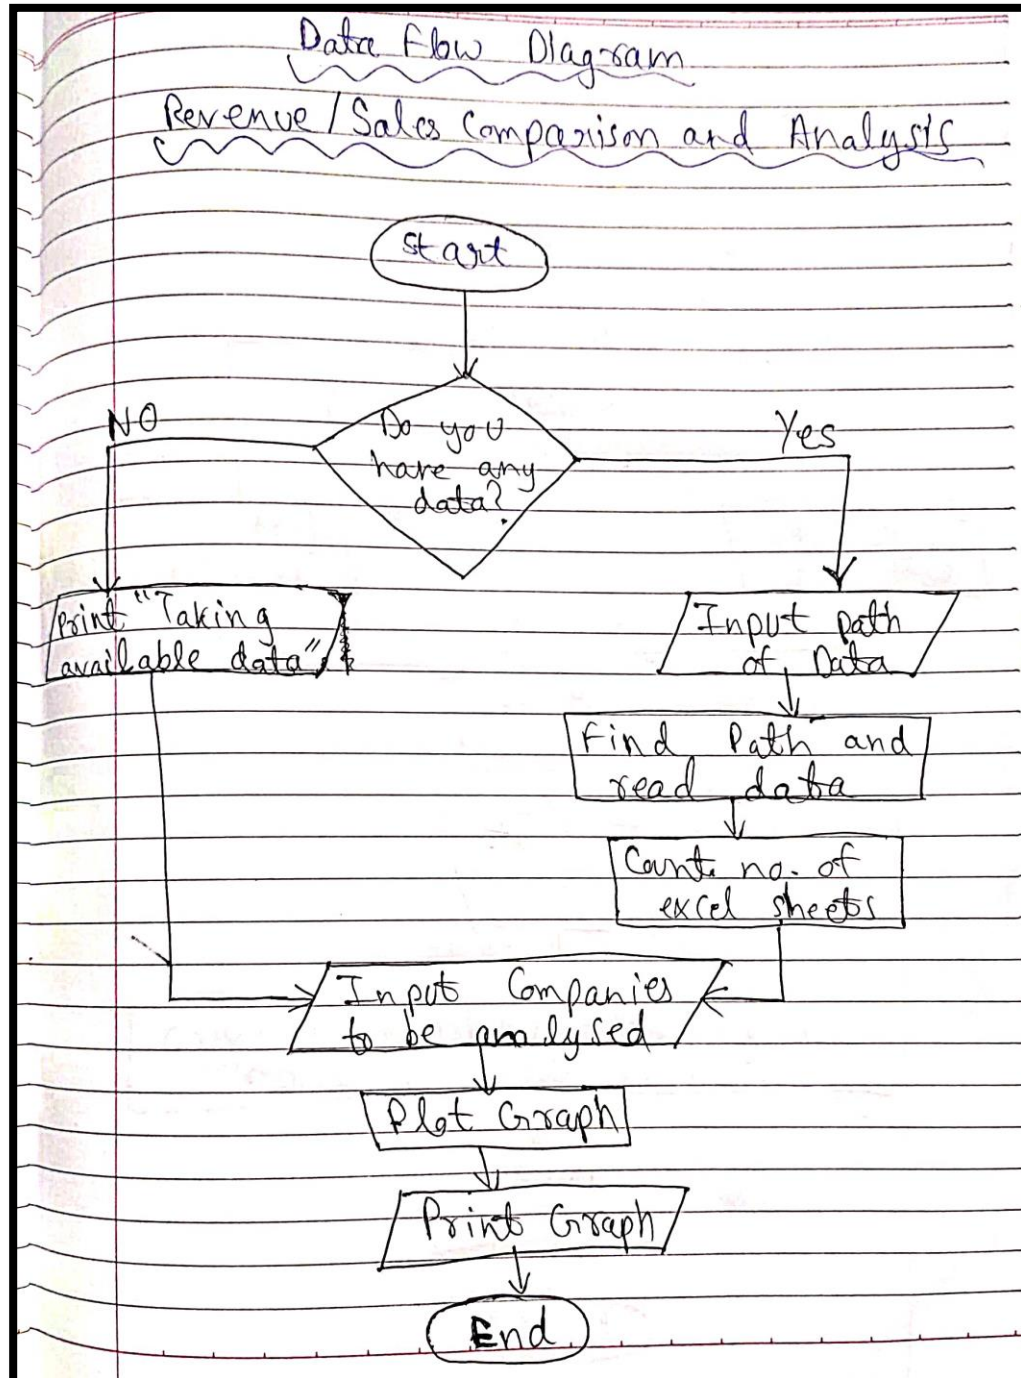 Data Flow Diagram
Revenue/Sales Comparison and Analysis
Start
NO
Yes
Do you
have any
data?
Print "Taking
available data"
Input path
of Data
Find Path and
read data
Count no. of
excel sheets
Input Companies
to be analysed
Plot Graph
Print Graph
End